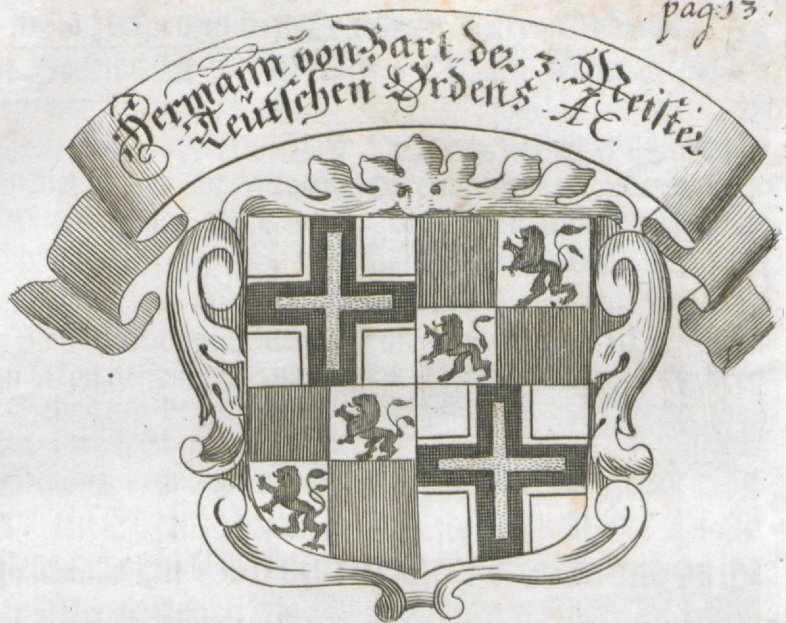 pag 13.
Hermann von Bart der 3. Meister
Teütschen Ordens A C.